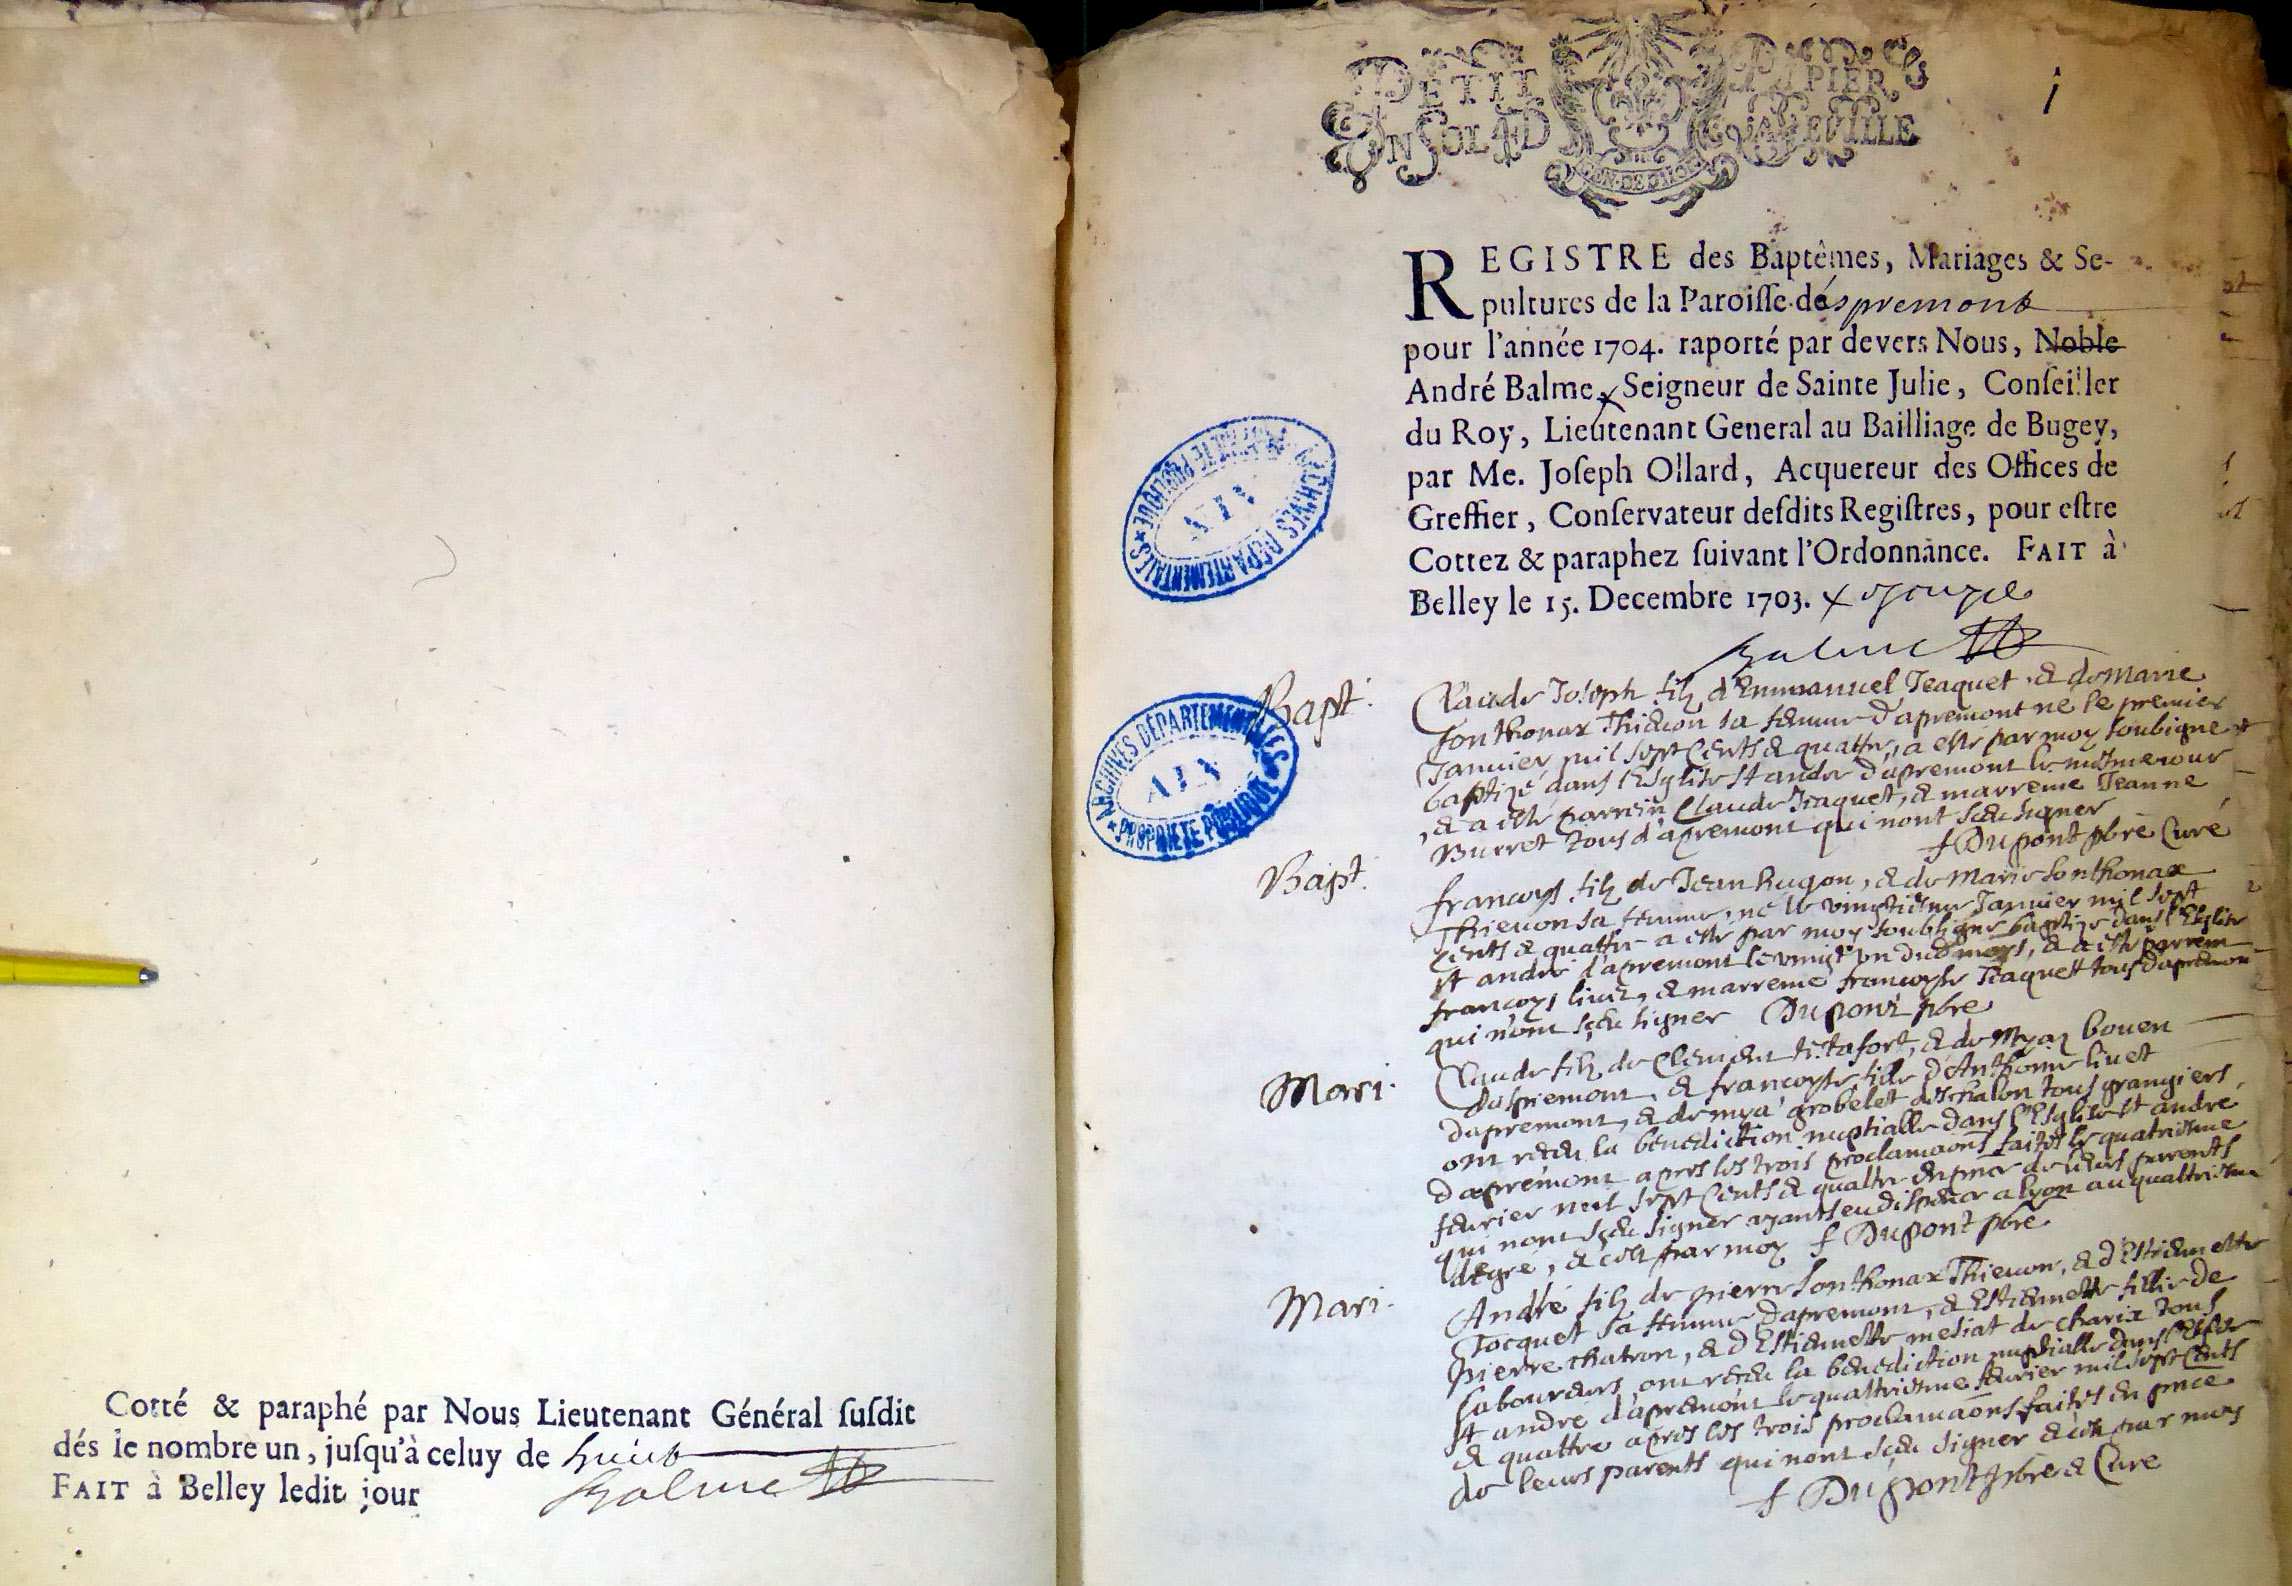 Cotté & paraphé par Nous Lieutenant Général susdit
dés le nombre un, jusqu'à celuy de huict
FAIT à Belley ledit jour
Balme
PETIT PAPIER
UN SOL 4 D LA FEUILLE
GEN. DE DIJON
1
REGISTRE des Baptêmes, Mariages & Se-
pultures de la Paroisse d'aspremont
pour l'année 1704. raporté par devers Nous, Noble
André Balme, Seigneur de Sainte Julie, Conseiller
du Roy, Lieutenant General au Bailliage de Bugey,
par Me. Joseph Ollard, Acquereur des Offices de
Greffier, Conservateur desdits Registres, pour estre
Cottez & paraphez suivant l'Ordonnance. FAIT à
Belley le 15. Decembre 1703. +
Balme
ARCHIVES DÉPARTEMENTALES
AIN
PROPRIÉTÉ PUBLIQUE
ARCHIVES DÉPARTEMENTALES
AIN
PROPRIÉTÉ PUBLIQUE
Bapt.
Claude Joseph filz d'Emmanuel Jeaquet & de Marie
Sonthonax Thievon sa femme d'apremont ne le premier
Janvier mil sept Cents & quattre, a esté par moy soubigné
baptizé dans l'Esglise st andre d'apremont le mesme iour
, & a esté parrein Claude Jeaquet, & marreine Jeanne
Burret tous d'apremont qui nont sceu signer
f Dupont pbre Curé
Bapt.
francoys filz de Jean hugon, & de Marie Sonthonax
Thievon sa femme, né le vingtiesme Janvier mil sept
Cents & quattre a esté par moy soubsigné baptize dans l'Esglise
st andré d'apremont le vingt un dud moys, & a esté parrein
francoys livet, & marreine francoyse Jeaquet tous d'apremont
qui nont sceu signer Dupont pbre
Mari.
Claude filz de Clement tetafort, & de Myaz bouen
d'aspremont, & francoyse fille d'Anthoine livet
d'apremont, & de mya grobelet d'eschalon tous grangiers
ont receu la benediction nuptialle dans l'Esglise st andré
d'apremont apres les trois proclamaons faites le quatriesme
fevrier mil sept Cents & quattre en pnce de leurs parents
qui nont sceu signer ayants eu dispence a lyon au quattriesme
degré, & c'est par moy f Dupont pbre
Mari.
André filz de pierre Sonthonax Thievon, & d'Estiennette
Jocquet sa femme d'apremont, & Estiennette fillie de
pierre chatron, & d'Estiennette mesiat de charix tous
laboureurs ont receu la benediction nuptialle dans l'Esglise
st andré d'apremont le quattriesme fevrier mil sept Cents
& quattre apres les trois proclamaons faites en pnce
de leurs parents qui nont sceu signer & c'est par moy
f Dupont pbre & Curé